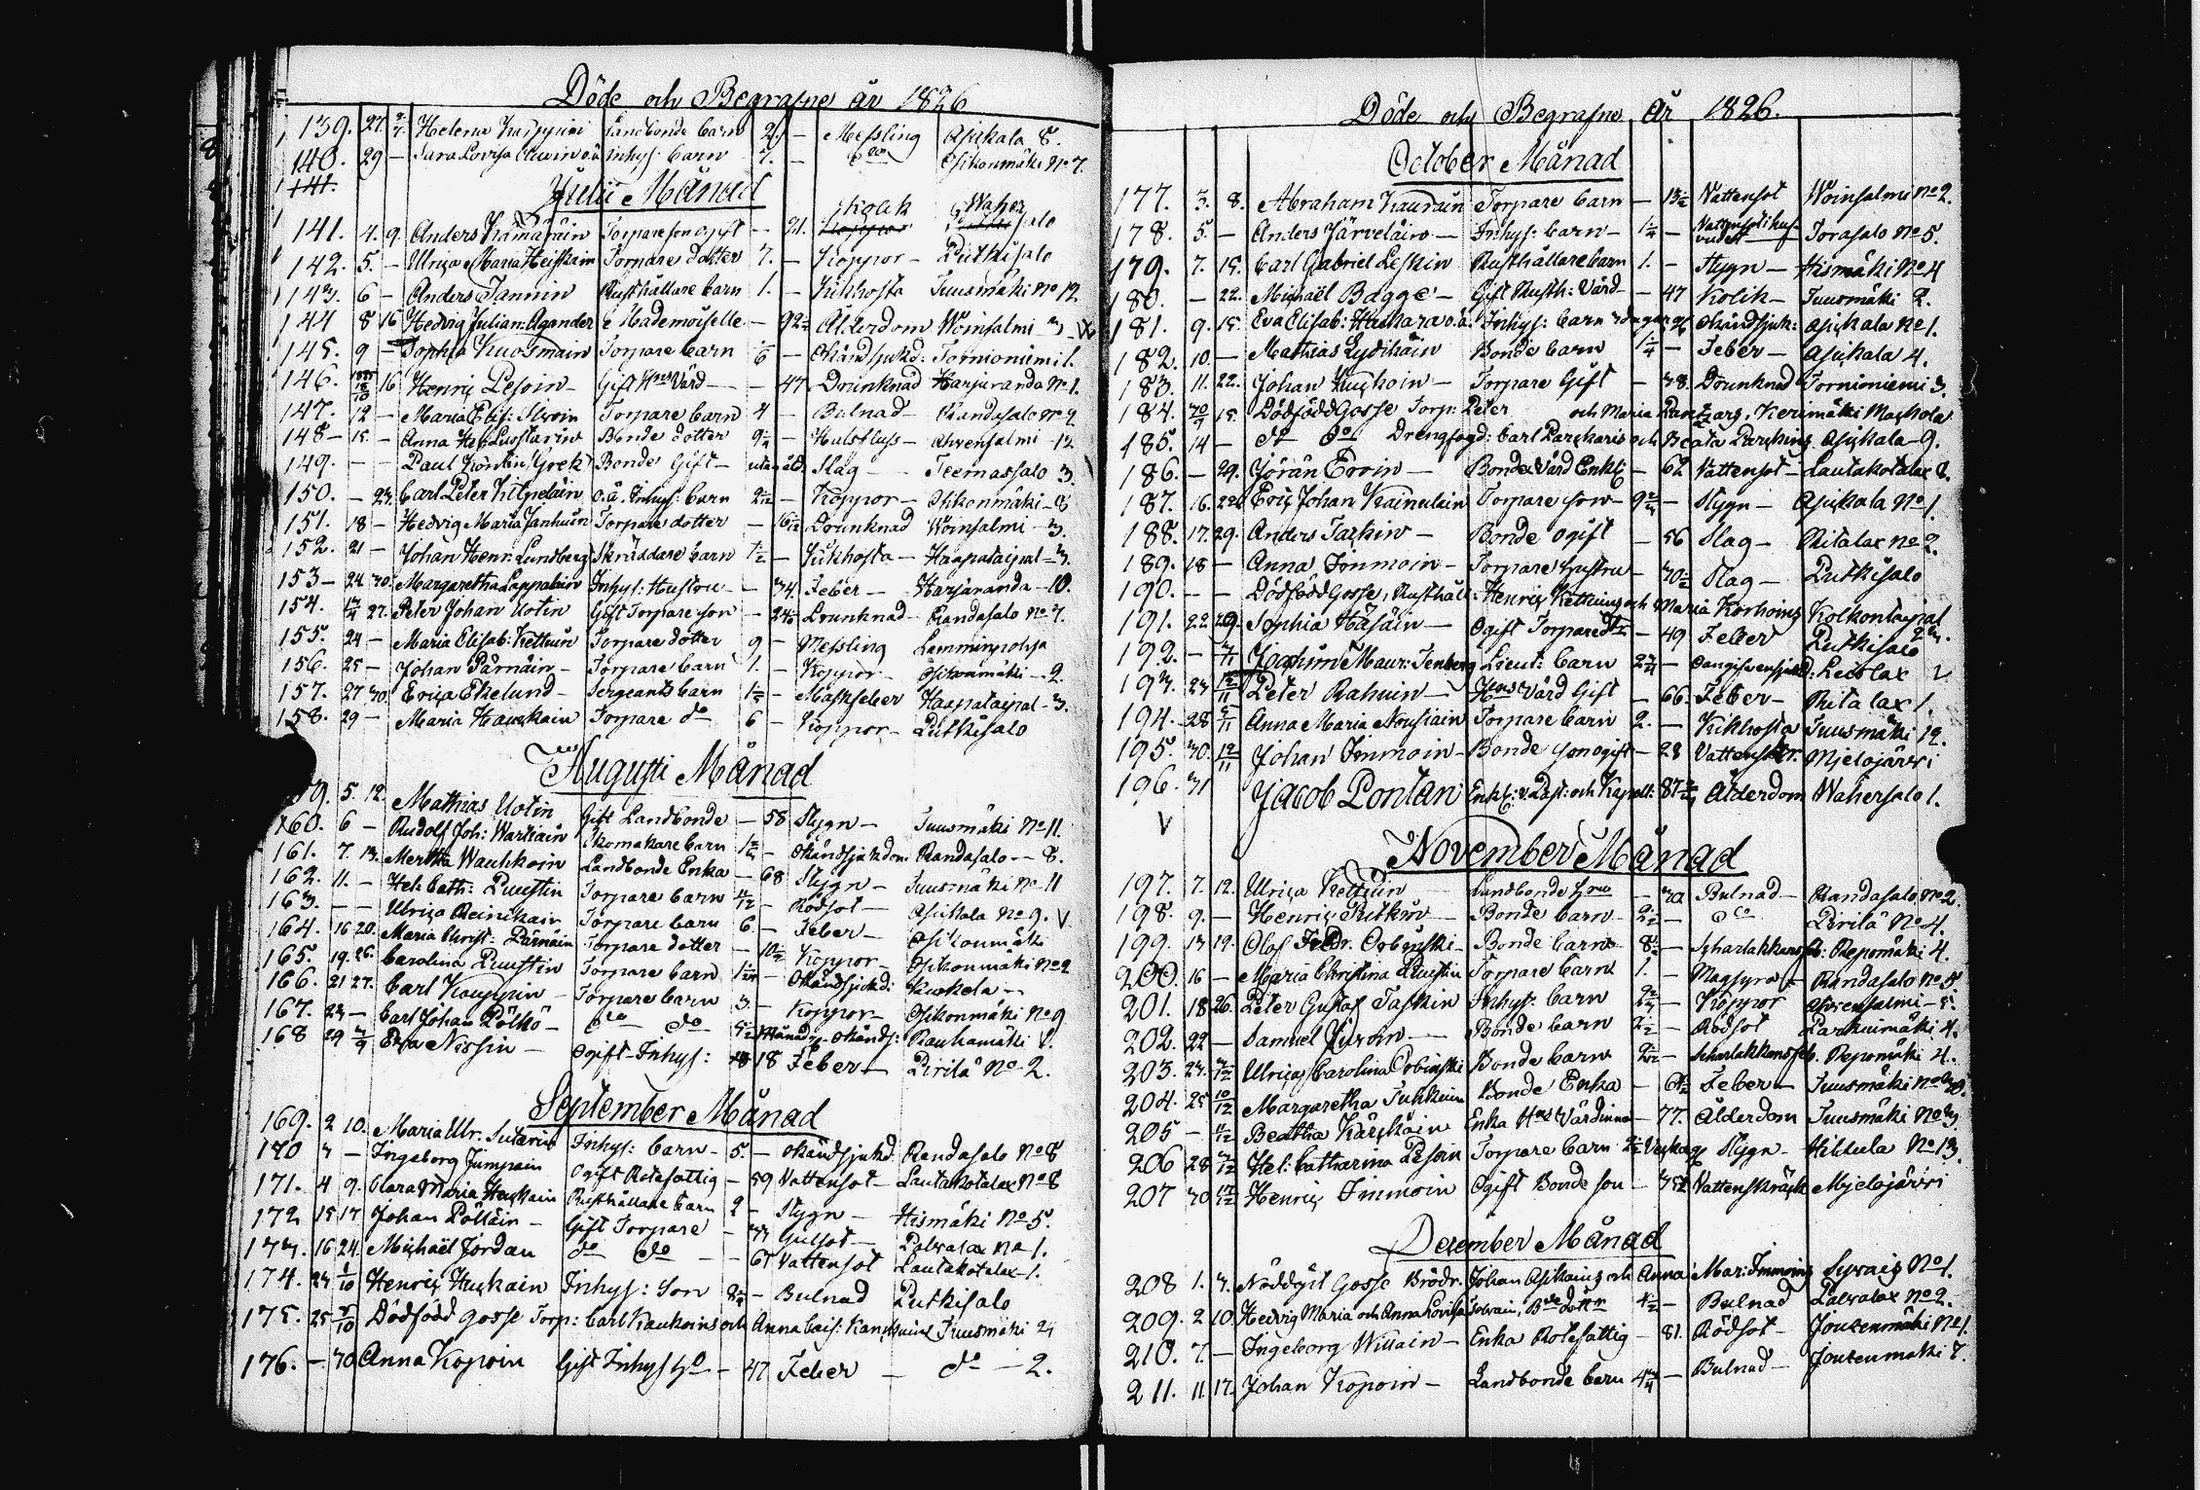 Döde och Begrafne år 1826
139. 27. 2/7. Helena Kauppini Landbonde barn 2. – Messling Asikala 8.
140. 29 – Sara Lovisa inhys: barn 7. – do Osikonmäki No 7.
141.
Julii Månad
141. 4. 9. Anders Kämäräin Torpare son ogift – 21. Kolik Wahersalo
142. 5. – Ulrica Maria Heiskain Torpare dotter 7. – Koppor – Putkisalo
143. 6 – Anders Tannin Rusthållare barn 1. – Kikhosta Juusmäki No 12
144 8 16 Hedvig Julian: Agander Mademoiselle – 92 Ålderdom Woinsalmi 3
145. 9 – Sophia Kuosmain Torpare barn – Okänd sjukd: Tornioniemi 1.
146. 16 Henric Pesoin – Gift Hms Värd – 47 – Drunknad Harjuranda No 1.
147. 12 – Maria Elis: Torpare barn 4 – Bulnad Randasalo No 2
148 – 15. – Anna Hel: Luostarin Bonde dotter 9 – Halsfluss – Ahvensalmi – 12
149. – – Paul Bonde Gift – utan åld. Slag – Teemassalo 3
150. – 23. Carl Peter Kilpeläin o.ä. Inhys: barn 2 – Koppor – Osikonmäki – 8
151. 18 – Hedvig Maria Janhuin Torpare dotter – 16 Drunknad Woinsalmi – 3.
152. 21 – Johan Henr: Lundberg Skräddare barn – Kikhosta – Haapataipal – 3.
153 – 24 30. Margaretha Lappalain Inhys: Hustru – 34. Feber – Harjuranda – 10.
154. 27. Peter Johan Uotin Gift Torpare son – 24 Drunknad – Randasalo No 7.
155. 24 – Maria Elisab: Kettuin Torpare dotter 9 – Messling Lamminpohja
156. 25 – Johan Pärnäin – Torpare barn 1. – Koppor – Osikonmäki – 2
157. 27 30. Erica Ekelund – Sergeants barn 1 – Maskfeber Haapataipal – 3.
158. 29 – Maria Hauskain Torpare do 6 – Koppor – Putkisalo
Augusti Månad
159. 5. 12. Mathias Uotin Gift Landbonde – 58 Stygn – Juusmäki No 11.
160. 6 – Rudolf Joh: Warkain Skomakare barn 1 – Okänd sjukdom Randasalo – 8.
161. 7. 13. Mertha Wauhkoin Landbonde Enka – 68 Stygn – Juusmäki No 11
162. 11. – Hel: Cath: Puustin Torpare barn – Rödsot – Asikala No 9. V
163. – – Ulrica Reinikain Torpare barn 6 – Feber – Osikonmäki
164. 16 20. Maria Christ: Pärnäin Torpare dotter – 10 Koppor – Osikonmäki No 2
165. 19. 26. Carolina Puustin Torpare barn 1 – Okänd sjukd: Kuokela –
166. 21 27. Carl Kauppin – Torpare barn 3 – Koppor – Osikonmäki No 9
167. 23 – Carl Johan Pölkö – do do Månad – Okänd s: Rauhamäki
168 29 Eva Nissin – Ogift Inhys: 18 Feber – Pirilä No 2.
September Månad
169. 2 10. Maria Ulr. Sutarin Inhys: barn – 5. – okänd sjukd Randasalo No 8
170 3 – Ingeborg Jumpain Ogift Rotefattig – 59 Vattensot – Lautakotalax No 8
171. 4 9. Clara Maria Hauskain Rusthållare barn 2 – Stygn – Hismäki No 5.
172 15 17 Johan Pölläin – Gift Torpare – 33 Gulsot – Palvalax No 1.
173. 16 24. Michaël Jordan do do – 67 Vattensot Lautakotalax – 1.
174. 23 1/10 Henric Huskain Inhys: Son 8 – Bulnad Putkisalo
175. 25 Dödfödd gosse Torp: Carl Kaukoins och Anna Cais: Juusmäki 2
176. – 30 Anna Kopoin Gift Inhys – 47 Feber – do – 2.
Döde och Begrafne År 1826.
October Månad
177. 3. 8. Abraham Kaurain Torpare barn – 13 Vattensot Woinsalmi No 2.
178. 5. – Anders Järveläin – Inhys: barn – 1/4 – Vattensot i hufvudet Torasalo No 5.
179. 7. 15. Carl Gabriel Leskin Rusthållare barn 1. – Stygn – Hismäki No 4
180. – 22. Michaël Bagge – Gift Rusth: Värd – 47 Kolik – Juusmäki 2.
181. 9. 15. Eva Elisab: o.ä. Inhys: barn 3 dagar okänd sjuk: Asikala No 1.
182. 10 – Mathias Lydikäin Bonde barn 1/4 – Feber – Asikala 4.
183. 11. 22. Johan – Torpare Gift – 38. Drunknad Tornioniemi 3
184. 15. Dödfödd Gosse Torp: Peter och Maria Kerimäki Mackola
185. 14 – do do Drengfogd: Carl Parckaris och Beata Asikala – 9.
186. – 29. Jöran Eroin – Bonde Värd Enkl: – 62 Vattensot – Lautakotalax 2.
187. 16. 22. Eric Johan Kainulain Torpare son – 9 – Stygn – Asikala No 1.
188. 17. 29. Anders Taskin – Bonde ogift – 56 Slag – Ritalax No 2.
189. 18 – Anna Immoin – Torpare hustru – 30 Slag – Putkisalo
190. – – Dödfödd Gosse, Rusthåll: Henric och Maria Korhoins Kolkontaipal
191. 22 29. Sophia Häsäin – Ogift Torpare – 49 Feber Putkisalo
192. – Joachim Maur: Lieut: barn 2 – Leislax
193. 23 Peter Rahuin – Hms Värd Gift – 66. Feber – Ritalax 1.
194. 28 Anna Maria Nousiain Torpare barn 2. – Kikhosta Juusmäki 12.
195. 30. 12/11 Johan Immoin – Bonde son ogift – 28 Vattenskr. Mjelojärvi
196. 31 Jacob Pontan Enkl: v. Past: och Kapell: 87 Ålderdom Wahersalo 1.
V
November Månad
197. 7. 12. Ulrica Kettuin Landbonde hru – 30 Bulnad – Randasalo No 2.
198. 9. – Henric Pitkin – Bonde barn – do Pirilä No 4.
199. 13 19. Olof Fredr. Orbinski – Bonde barn 8 – Scharlakkansfeb: Repomäki 4.
200. 16 – Maria Christina Puustin Torpare barn 1. – Magsyra – Randasalo No 5.
201. 18 26. Peter Gustaf Taskin Inhys: barn – Koppor Ahvensalmi – 5.
202. 22 – Samuel – Bonde barn – Rödsot Parkuimäki 4.
203. 23. Ulrica Carolina Orbinski Bonde barn – Scharlakkansfeb. Repomäki 4.
204. 25 10/12 Margaretha Tuhkuin Bonde Enka – Feber – Juusmäki No
205 – Beatha Käräkäin Enka Hms Värdinna – 77. Ålderdom Juusmäki No 3.
206 28 Hel: Catharina Pesoin Torpare barn Stygn – Hiltula No 13.
207 30 Henric Immoin Ogift Bonde son – Vattenskräck Mjelojärvi
December Månad
208 1. 3. Nöddöpt Gosse Brödr. Johan Asikains och Anna Mar: Immoins No 1.
209. 2 10. Hedvig Maria och Anna Lovisa – Bulnad Palvalax No 2.
210. 7. – Ingeborg Willain – Enka Rotefattig – 81. Rödsot – Joutenmäki No 1.
211. 11 17. Johan Kopoin – Landbonde barn 4 – Bulnad – Joutenmäki 7.